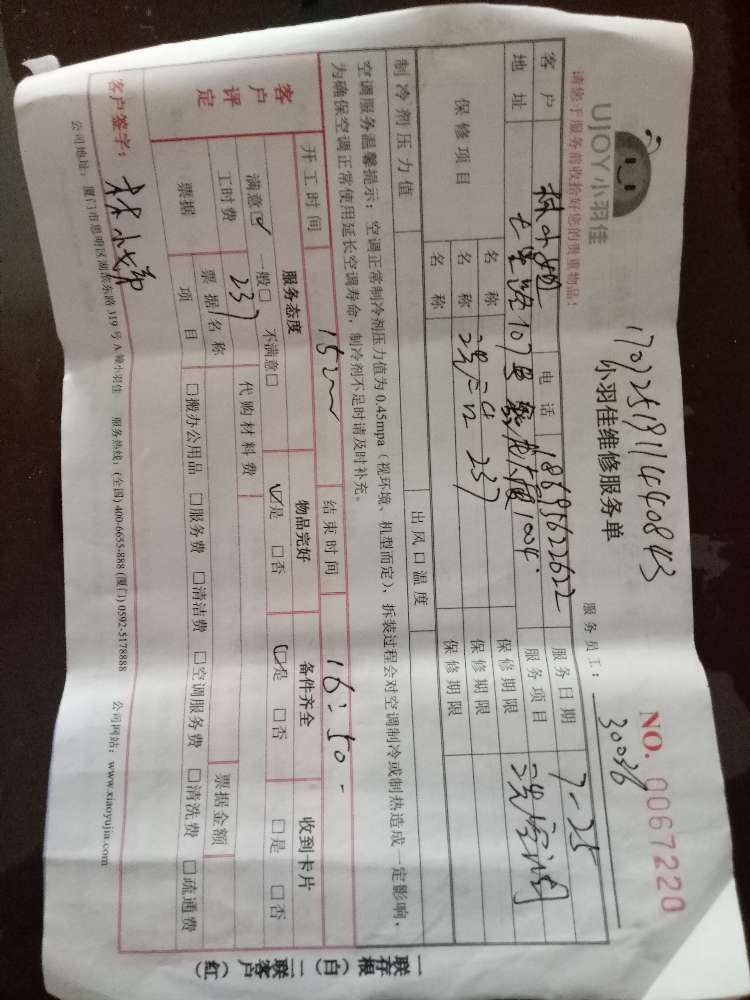 UJOY小羽佳
170725181114440843
小羽佳维修服务单
NO. 0067220
请您于服务前收拾好您的贵重物品！
服务员工：30036
客户 林小姐 电话 18695622622 服务日期 7-25
地址 七星路107号 大厦1004. 服务项目 洗空调
保修项目 名称 保修期限
名称 237 保修期限
名称 保修期限
制冷剂压力值 出风口温度
空调服务温馨提示：空调正常制冷剂压力值为0.45mpa（视环境、机型而定），拆装过程会对空调制冷或制热造成一定影响，
为确保空调正常使用延长空调寿命，制冷剂不足时请及时补充。
开工时间 结束时间 16:50-
客户评定 服务态度 物品完好 备件齐全 收到卡片
满意☑ 一般□ 不满意□ ☑是 □否 ☑是 □否 □是 □否
工时费 237 代购材料费
票据 票据名称 票据金额
项目 □搬办公用品 □服务费 □清洁费 □空调服务费 □清洗费 □疏通费
客户签字：林小姐
公司地址：厦门市思明区湖滨东路319号A幢小羽佳 服务热线：(全国) 400-6655-888 (厦门) 0592-5178888 公司网站：www.xiaoyujia.com
一联存根（白）二联客户（红）